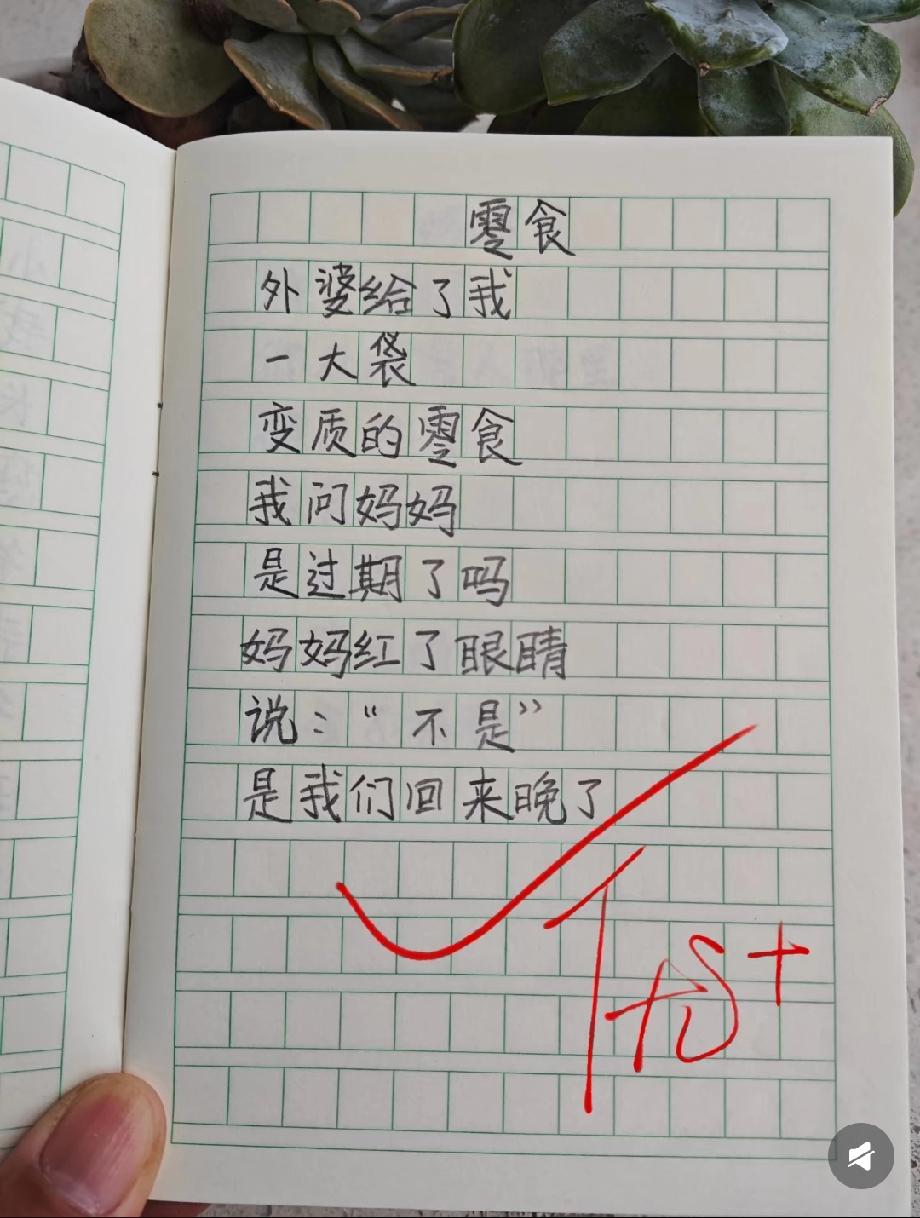 零食
外婆给了我
一大袋
变质的零食
我问妈妈
是过期了吗
妈妈红了眼睛
说：“不是”
是我们回来晚了